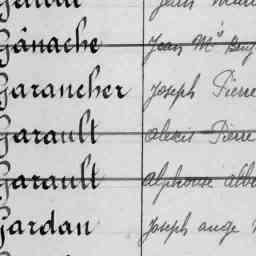 Gânache Jean Mie
Garancher Joseph Pierre
Garault alexis Pierre
Garault alphonse
Gardan Joseph ange